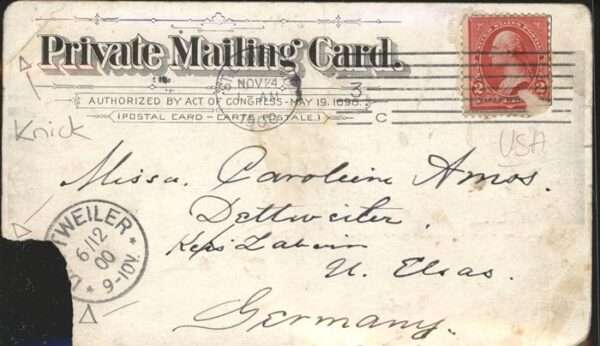 Private Mailing Card.
AUTHORIZED BY ACT OF CONGRESS-MAY 19, 1898.
(POSTAL CARD - CARTE POSTALE.)
NOV 24
3
C
2
2
Knick
USA
Missa. Caroline Amos.
Dettweiler.
Zabern
U. Elsas.
Germany.
TWEILER
6/12
00
9-10V.